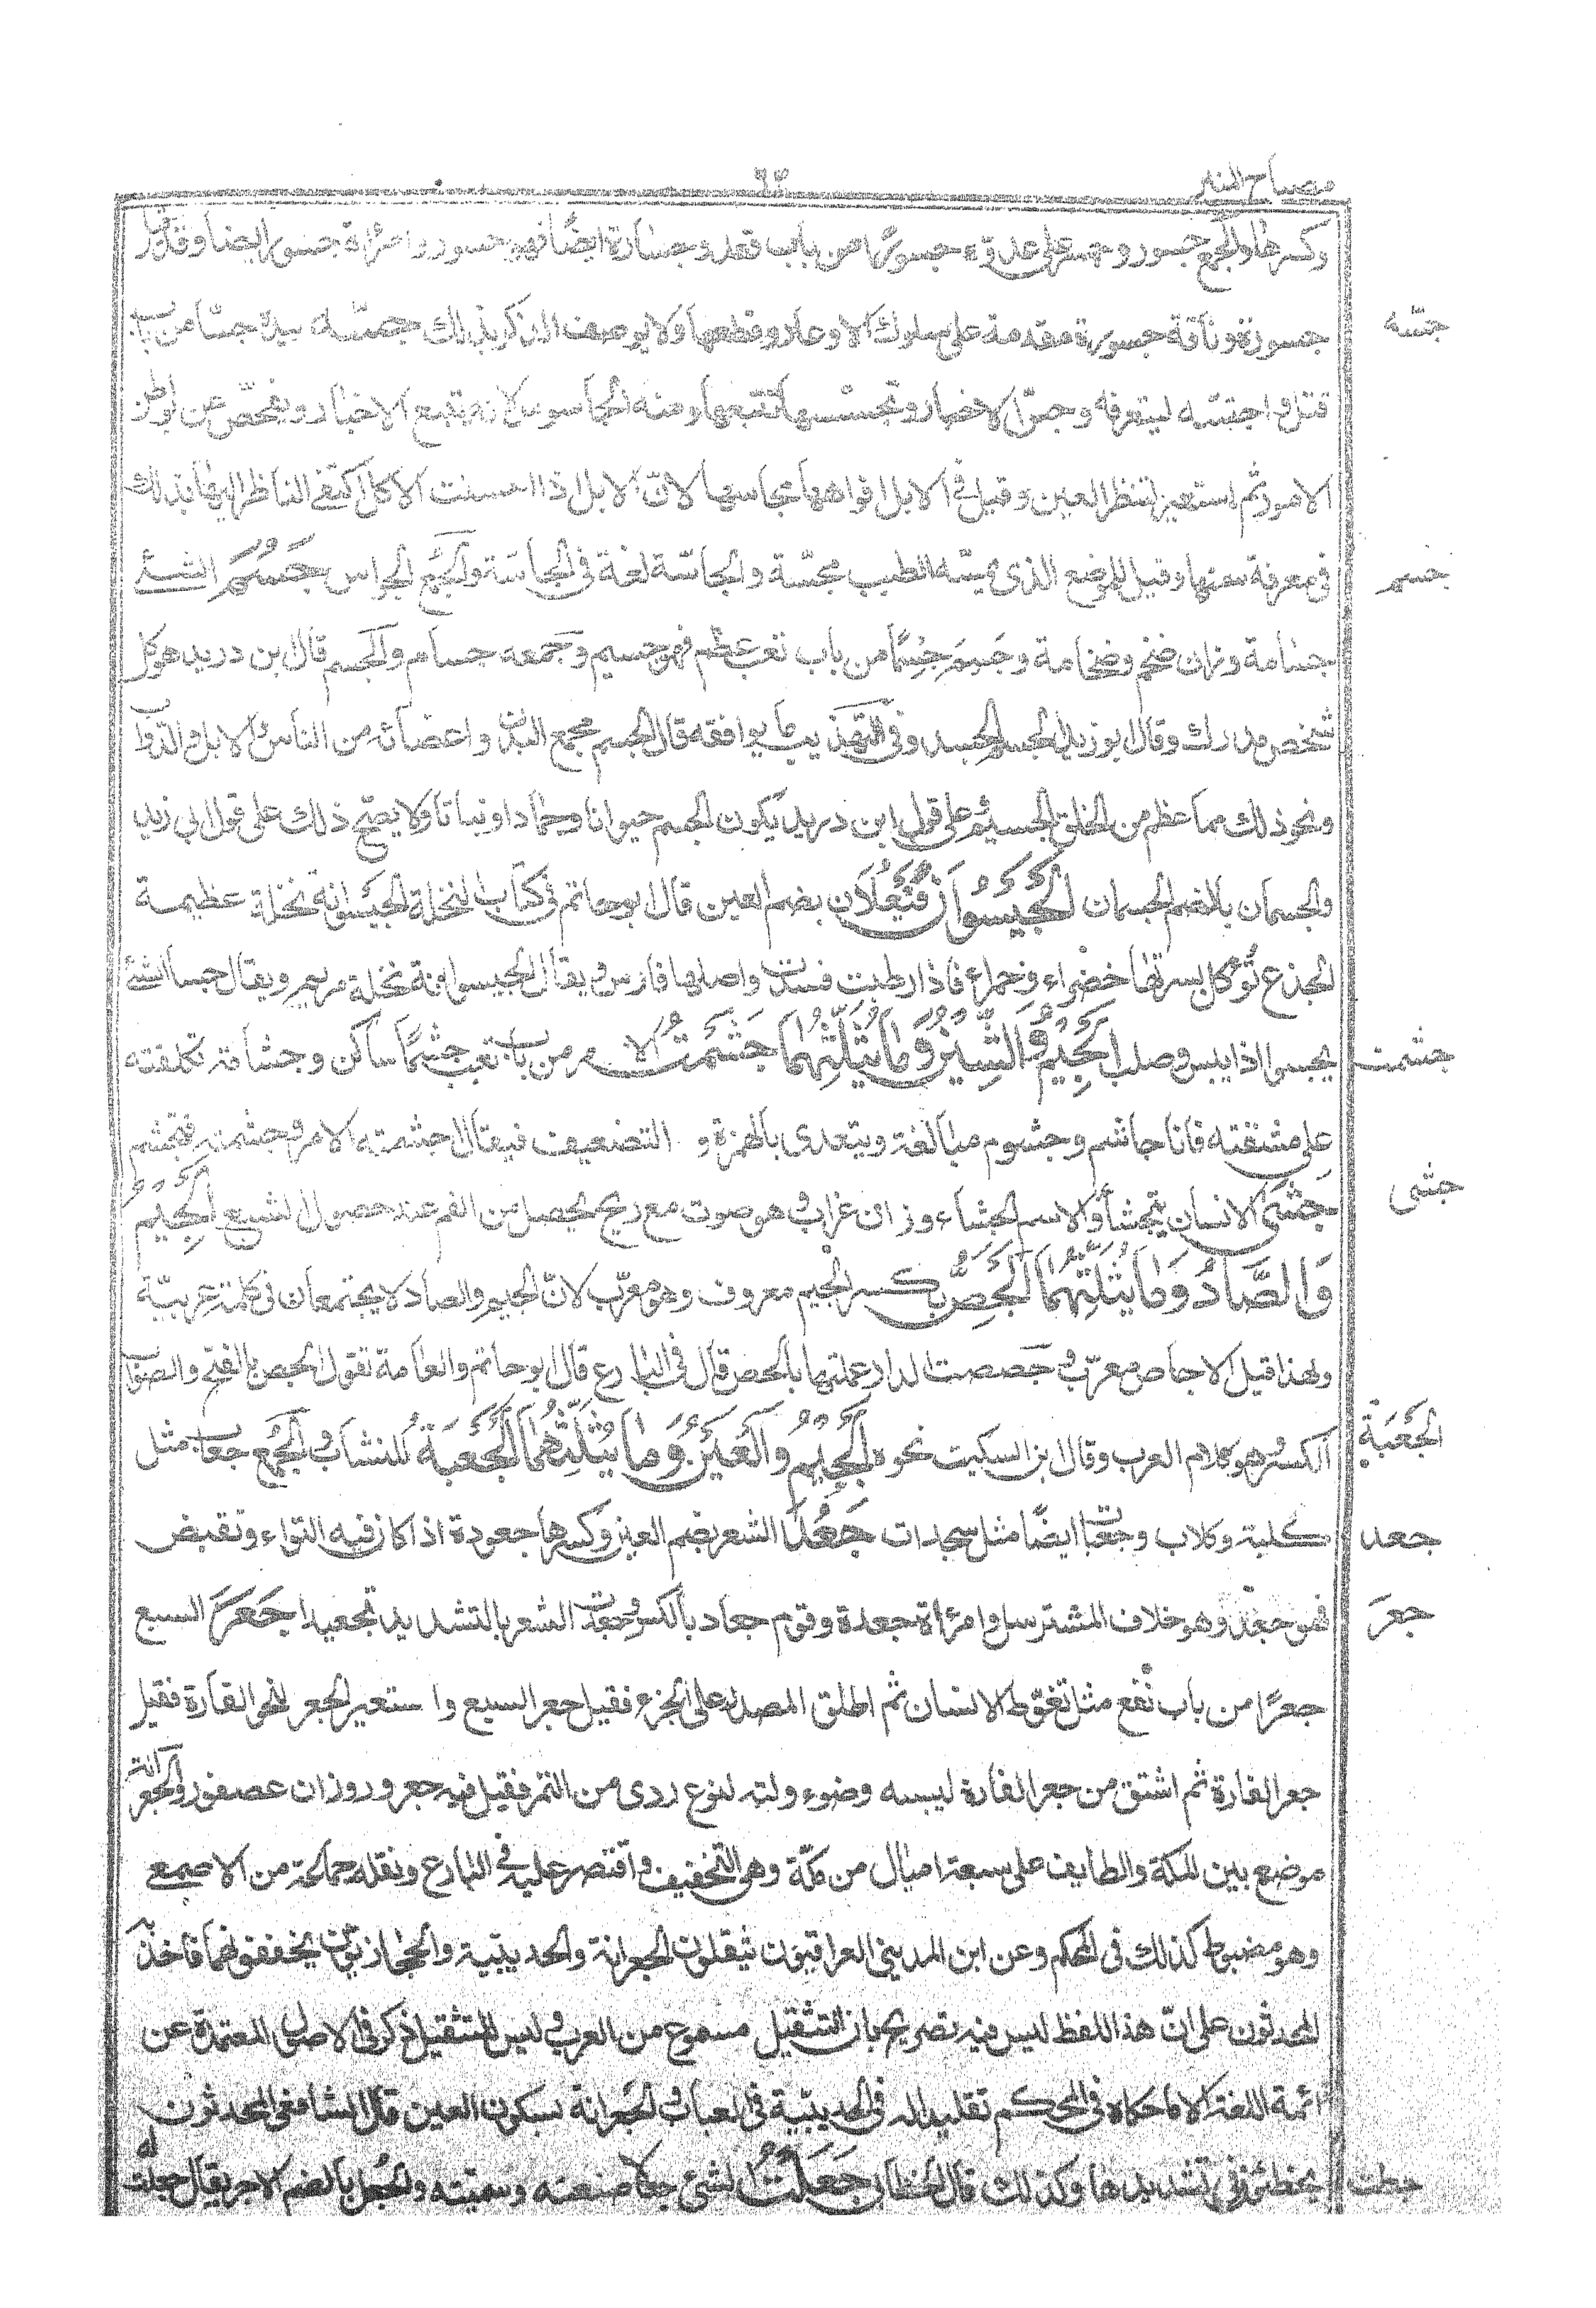 مصباح المنير
٦٣
وكسرها والجمع جسور وجسر على عدوه جسورًا من باب قعد وجسارة ايضًا فهو جسور وامرأة جسور ايضا وقد قيل
جسورة وناقة جسورة مقدمة على سلوك الاوعار وقطعها ولا يوصف الذكر بذلك جسّه بيده جسّا من باب
جسّه
قتل واجتسّه ليتعرفه وجسّ الاخبار وتجسّسها تتبعها ومنه الجاسوس لانه يتتبع الاخبار ويفحص عن بواطن
الامور ثم استعير لنظر العين وقيل فى الابل افواهها مجاسها لانّ الابل اذا احسنت الاكل اكتفى الناظر اليها بذلك
فى معرفة سمنها وقيل للموضع الذى يمسّه الطبيب مجسّة والجاسّة لغة فى الحاسّة والجمع الجواس جَسُمَ الشئ
جسم
جسامة وزان ضخم وضخامة وجَسِمَ جِسَمًا من باب تعب عظم فهو جسيم وجمعه جسام والجسم قال ابن دريد هو كل
شخص مدرك وقال ابو زيد الجسم الجسد وفى التهذيب ما يوافقه قال الجسم مجمع البدن واعضائه من الناس والابل والدّواب
ونحو ذلك مما عظم من الخلق الجسيم على قول ابن دريد يكون الجسم حيوانا وجمادا ونباتا ولا يصحّ ذلك على قول ابى زيد
والجسمان بالضم الجسمان الْجَيْسُوَان فَيْعُلَان بضم العين قال ابو حاتم فى كتاب النخلة الجيسوانة نخلة عظيمة
الجذع تؤكل بسرتها خضراء وحمراء فاذا ارطبت فسدت واصلها فارس ويقال الجيسوانة نخلة مريم ويقال جسا الشئ
يجسوا اذا يبس وصلب الْجِيْمُ وَالشِّيْنُ وَمَا يُثَلِّثُهُمَا جَشِمْتُ الامر من باب تعب جشمًا ساكن وجشامة تكلفته
جشمت
على مشقته فانا جاشم وجشوم مبالغة ويتعدى بالهمزة و التضعيف فيقال اجشمته الامر وجشمته فتجشم
جَشَى الانسان يتجشأ والاسم الجشاء وزان غراب وهو صوت مع ريح يحصل من الفم عند حصول الشبع الْجِيْمُ
جشى
وَالصَّادُ وَمَا يُثَلِّثُهُمَا الْجَصُّ بكسر الجيم معروف وهو معرّب لانّ الجيم والصاد لا يجتمعان فى كلمة عربيّة
ولهذا قيل الاجاص معرّب وجصصت الدار عملتها بالجص قال فى البارع قال ابو حاتم والعامة تقول الجص بالفتح والصواب
الكسر وهو كلام العرب وقال ابن السكيت نحوه الْجِيْمُ وَالْعَيْنُ وَمَا يُثَلِّثُهُمَا الْجَعْبَةُ للنشاب والجمع جعاب مثل
الجَعْبَة
كلبة وكلاب وجعبات ايضًا مثل سجدات جَعُدَ الشعر بضم العين وكسرها جعودة اذا كان فيه التواء وتقبض
جعد
فهو جعد وهو خلاف المسترسل وامرأة جعدة وقوم جعاد بالكسر وجعدت الشعر بالتشديد تجعيدا جَعَرَ السبع
جعرَ
جعرًا من باب نفع مثل تغوّط الانسان ثم اطلق المصدر على الخرء فقيل جعر السبع وا ستعير الجعر لنحو الفارة فقيل
جعر الفارة ثم اشتق من جعر الفارة ليبسه وضوءولته لنوع ردى من التمر فقيل فيه جعرور وزان عصفور والجعرانة
موضع بين المكة والطايف على سبعة اميال من مكّة وهى بالتخفيف واقتصر عليه فى البارع ونقله جماعة من الاصمعى
وهو مضبوط كذلك فى المحكم وعن ابن المدينى العراقيون يثقلون الجعرانة والحديبية والحجازيون يخففونهما فاخذ به
المحدثون على انّ هذا اللفظ ليس فيه تصريح بان التثقيل مسموع من العرب وليس للتثقيل ذكر فى الاصول المعتمدة عن
ائمة اللغة الا ما حكاه فى المحكم تقليدا له فى الحديبية فى العباب والجعرانة بسكون العين قال الشافعى المحدثون
يخطئون فى تشديدها وكذلك قال الخطابى جَعَلْتُ الشئ جعلا صنعته وسميته والجعل بالضم الاجر يقال جعلت له
جعلت